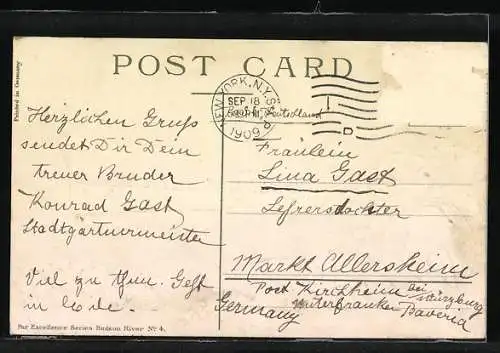 POST CARD
Printed in Germany
NEW YORK, N.Y.
SEP 18
1909
Deutschland
Herzlichen Gruss
sendet Dir Dein
treuer Bruder
Konrad Gast
Stadtgärtnermeister
Viel zu thun. Geht
in
Fräulein
Lina Gast
Lehrerstochter
Markt Allersheim
Post Kirchheim bei Würzburg
Unterfranken Bavaria
Germany
Par Excellence Series Hudson River Nº 4.